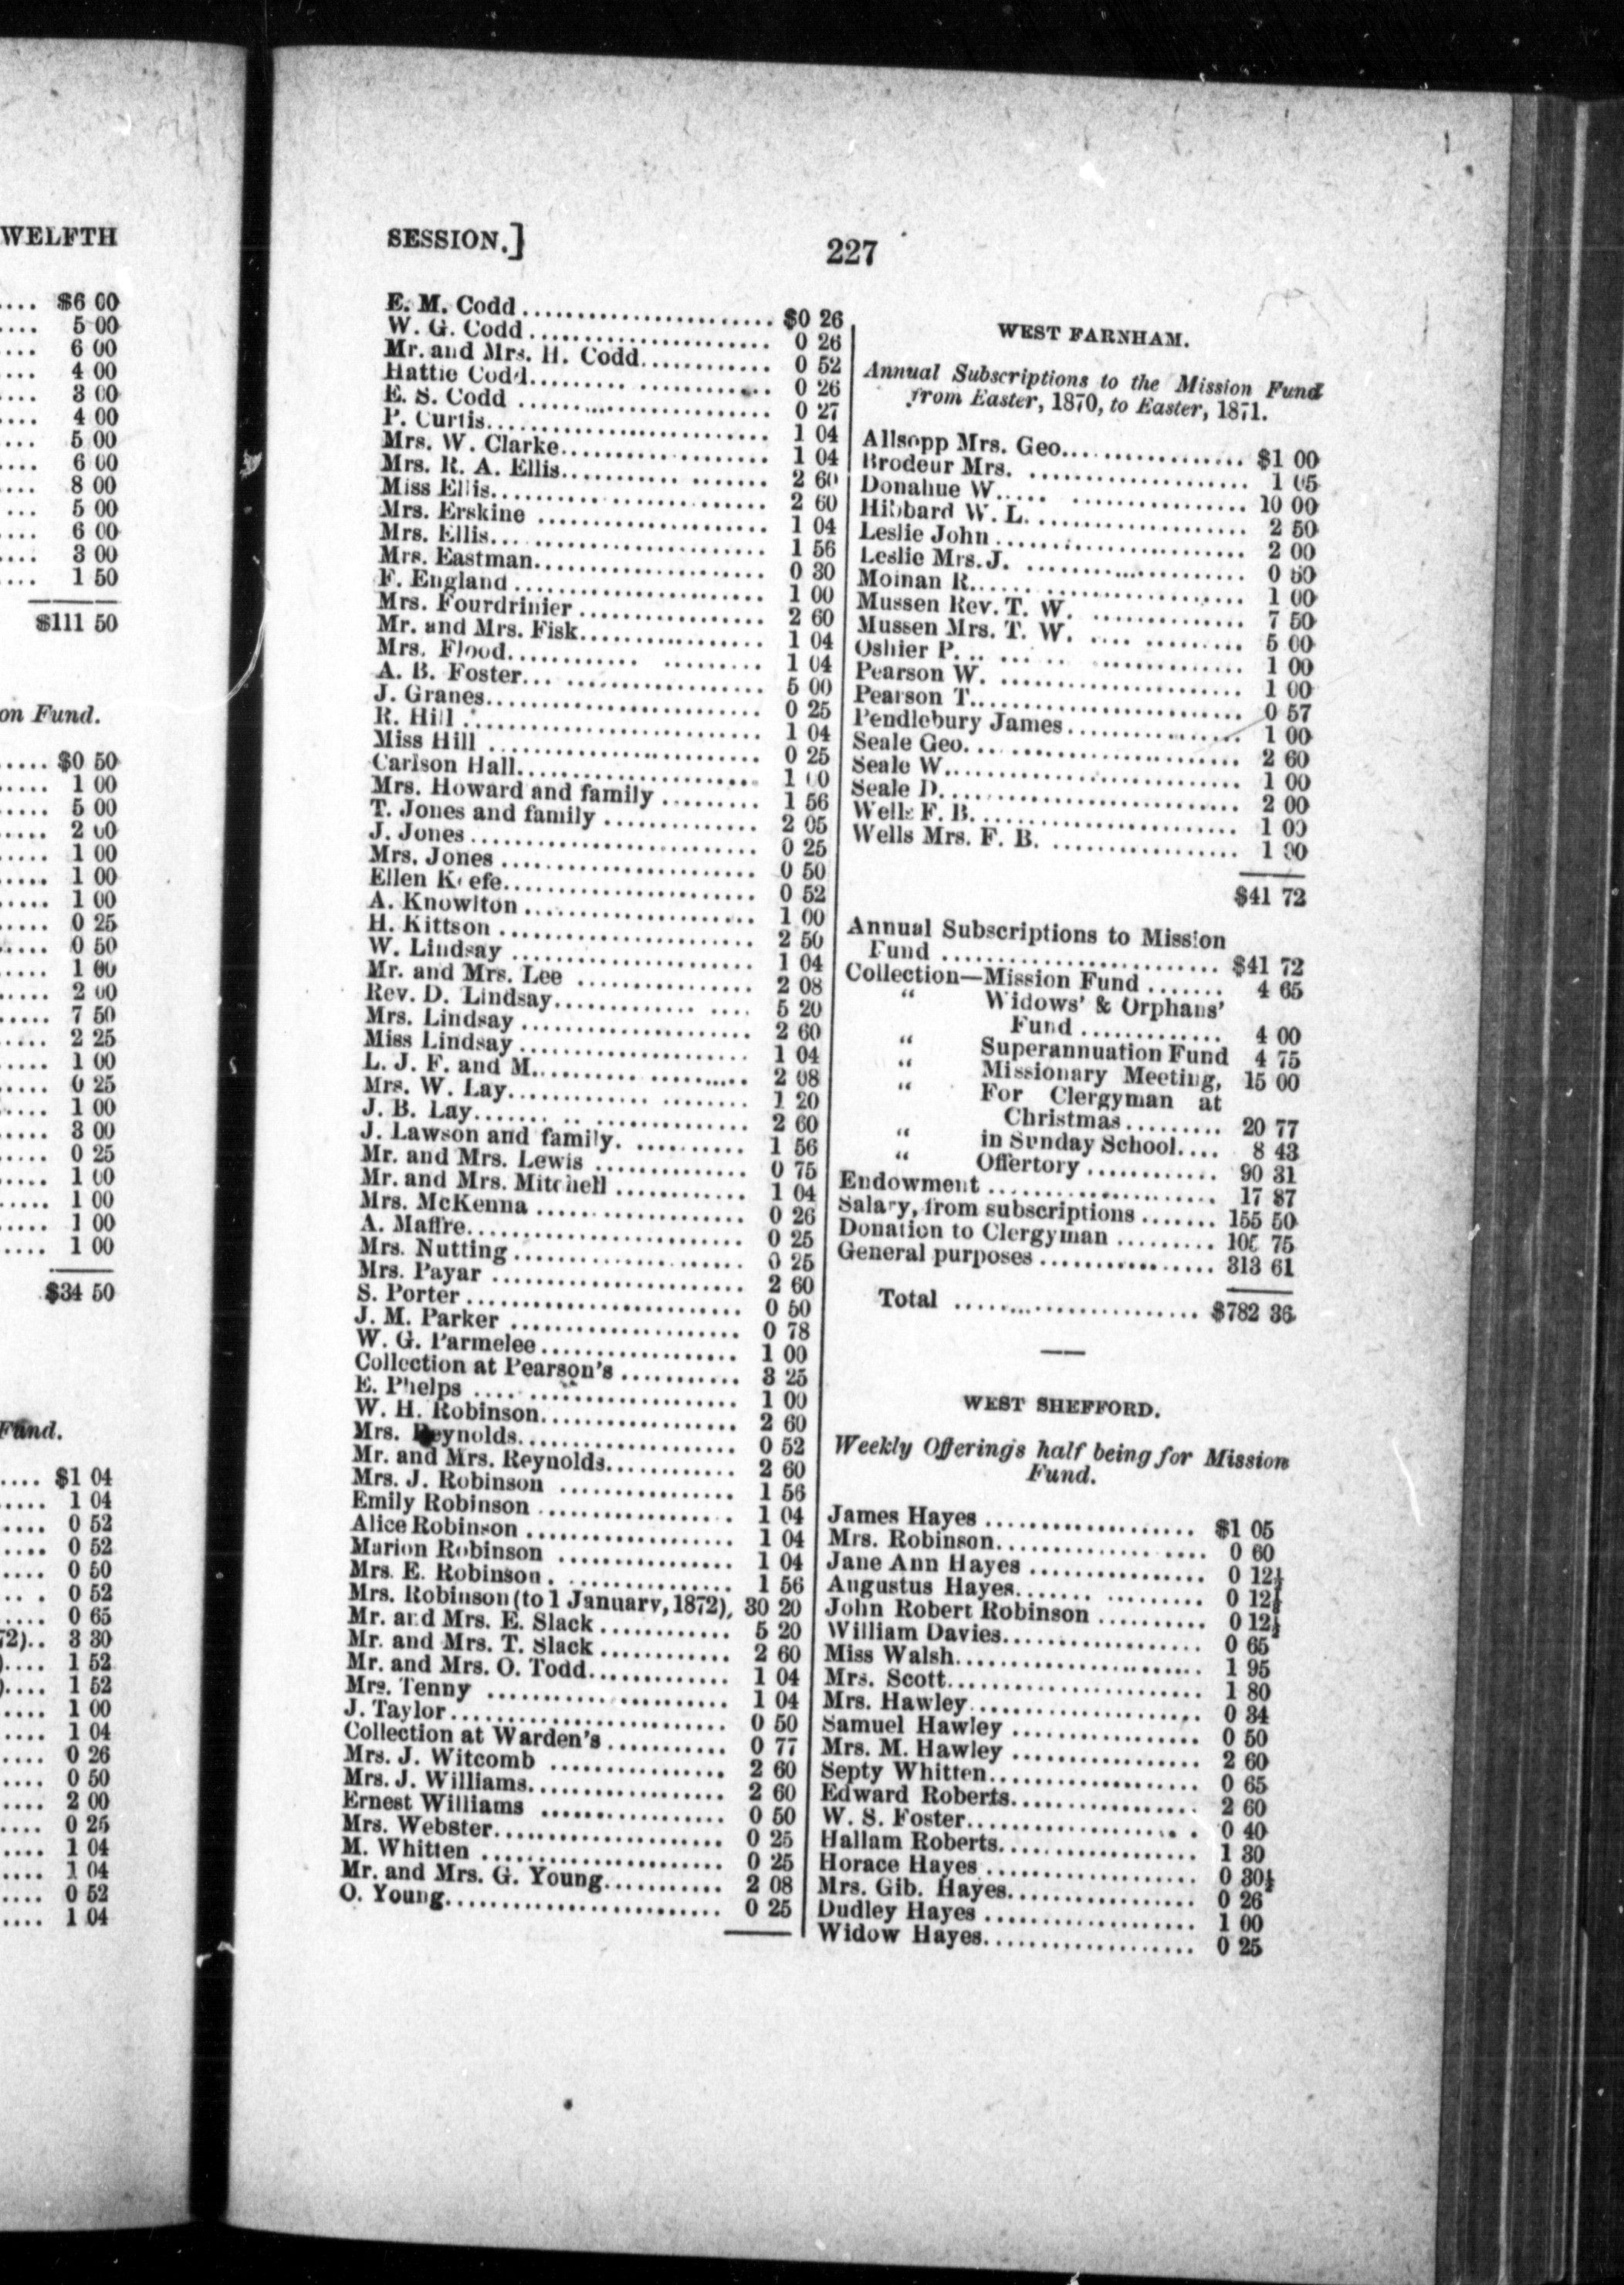 WELFTH
.... $6 00
.... 5 00
.... 6 00
.... 4 00
.... 3 00
.... 4 00
.... 5 00
.... 6 00
.... 8 00
.... 5 00
.... 6 00
.... 3 00
.... 1 50
$111 50
on Fund.
..... $0 50
..... 1 00
..... 5 00
..... 2 00
..... 1 00
..... 1 00
..... 1 00
..... 0 25
..... 0 50
..... 1 00
..... 2 00
..... 7 50
..... 2 25
..... 1 00
..... 0 25
..... 1 00
..... 3 00
..... 0 25
..... 1 00
..... 1 00
..... 1 00
..... 1 00
$34 50
Fund.
.... $1 04
.... 1 04
.... 0 52
.... 0 52
.... 0 50
.... 0 52
.... 0 65
72).. 3 30
).... 1 52
).... 1 52
.... 1 00
.... 1 04
.... 0 26
.... 0 50
.... 2 00
.... 0 25
.... 1 04
.... 1 04
.... 0 52
.... 1 04
SESSION.] 227
E. M. Codd ........ $0 26
W. G. Codd ........ 0 26
Mr. and Mrs. H. Codd ........ 0 52
Hattie Codd ........ 0 26
E. S. Codd ........ 0 27
P. Curtis ........ 1 04
Mrs. W. Clarke ........ 1 04
Mrs. R. A. Ellis ........ 2 60
Miss Ellis ........ 2 60
Mrs. Erskine ........ 1 04
Mrs. Ellis ........ 1 56
Mrs. Eastman ........ 0 30
F. England ........ 1 00
Mrs. Fourdrinier ........ 2 60
Mr. and Mrs. Fisk ........ 1 04
Mrs. Flood ........ 1 04
A. B. Foster ........ 5 00
J. Granes ........ 0 25
R. Hill ........ 1 04
Miss Hill ........ 0 25
Carlson Hall ........ 1 00
Mrs. Howard and family ........ 1 56
T. Jones and family ........ 2 05
J. Jones ........ 0 25
Mrs. Jones ........ 0 50
Ellen Keefe ........ 0 52
A. Knowlton ........ 1 00
H. Kittson ........ 2 50
W. Lindsay ........ 1 04
Mr. and Mrs. Lee ........ 2 08
Rev. D. Lindsay ........ 5 20
Mrs. Lindsay ........ 2 60
Miss Lindsay ........ 1 04
L. J. F. and M. ........ 2 08
Mrs. W. Lay ........ 1 20
J. B. Lay ........ 2 60
J. Lawson and family. ........ 1 56
Mr. and Mrs. Lewis ........ 0 75
Mr. and Mrs. Mitchell ........ 1 04
Mrs. McKenna ........ 0 26
A. Maffre ........ 0 25
Mrs. Nutting ........ 0 25
Mrs. Payar ........ 2 60
S. Porter ........ 0 50
J. M. Parker ........ 0 78
W. G. Parmelee ........ 1 00
Collection at Pearson's ........ 3 25
E. Phelps ........ 1 00
W. H. Robinson ........ 2 60
Mrs. Reynolds ........ 0 52
Mr. and Mrs. Reynolds ........ 2 60
Mrs. J. Robinson ........ 1 56
Emily Robinson ........ 1 04
Alice Robinson ........ 1 04
Marion Robinson ........ 1 04
Mrs. E. Robinson ........ 1 56
Mrs. Robinson (to 1 January, 1872), 30 20
Mr. and Mrs. E. Slack ........ 5 20
Mr. and Mrs. T. Slack ........ 2 60
Mr. and Mrs. O. Todd ........ 1 04
Mrs. Tenny ........ 1 04
J. Taylor ........ 0 50
Collection at Warden's ........ 0 77
Mrs. J. Witcomb ........ 2 60
Mrs. J. Williams ........ 2 60
Ernest Williams ........ 0 50
Mrs. Webster ........ 0 25
M. Whitten ........ 0 25
Mr. and Mrs. G. Young ........ 2 08
O. Young ........ 0 25
WEST FARNHAM.
Annual Subscriptions to the Mission Fund
from Easter, 1870, to Easter, 1871.
Allsopp Mrs. Geo. ........ $1 00
Brodeur Mrs. ........ 1 05
Donahue W. ........ 10 00
Hibbard W. L. ........ 2 50
Leslie John ........ 2 00
Leslie Mrs. J. ........ 0 50
Moinan R. ........ 1 00
Mussen Rev. T. W. ........ 7 50
Mussen Mrs. T. W. ........ 5 00
Oshier P. ........ 1 00
Pearson W. ........ 1 00
Pearson T. ........ 0 57
Pendlebury James ........ 1 00
Seale Geo. ........ 2 60
Seale W. ........ 1 00
Seale D. ........ 2 00
Wells F. B. ........ 1 00
Wells Mrs. F. B. ........ 1 00
$41 72
Annual Subscriptions to Mission
Fund ........ $41 72
Collection—Mission Fund ....... 4 65
“ Widows' & Orphans'
Fund ........ 4 00
“ Superannuation Fund 4 75
“ Missionary Meeting, 15 00
“ For Clergyman at
Christmas ........ 20 77
“ in Sunday School.... 8 43
“ Offertory ........ 90 31
Endowment ........ 17 87
Salary, from subscriptions ....... 155 50
Donation to Clergyman ........ 105 75
General purposes ........ 313 61
Total ........ $782 36
WEST SHEFFORD.
Weekly Offerings half being for Mission
Fund.
James Hayes ........ $1 05
Mrs. Robinson ........ 0 60
Jane Ann Hayes ........ 0 12½
Augustus Hayes ........ 0 12½
John Robert Robinson ........ 0 12½
William Davies ........ 0 65
Miss Walsh ........ 1 95
Mrs. Scott ........ 1 80
Mrs. Hawley ........ 0 34
Samuel Hawley ........ 0 50
Mrs. M. Hawley ........ 2 60
Septy Whitten ........ 0 65
Edward Roberts ........ 2 60
W. S. Foster ........ 0 40
Hallam Roberts ........ 1 30
Horace Hayes ........ 0 30½
Mrs. Gib. Hayes ........ 0 26
Dudley Hayes ........ 1 00
Widow Hayes ........ 0 25